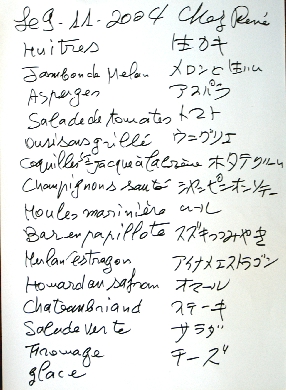 Le 9-11-2004 Chez René
Huitres 生カキ
Jambon de Melon メロンと生ハム
Asperges アスパラ
Salade de tomates トマト
Oursins grillé ウニグリエ
Coquilles St-Jacque à la crème ホタテクリーム
Champignons sauté シャンピニオンソテー
Moules marinière ムール
Bar en papillote スズキつつみやき
Merlan estragon アイナメエストラゴン
Homard au safran オマール
Chateaubriand ステーキ
Salade verte サラダ
Fromage チーズ
glace